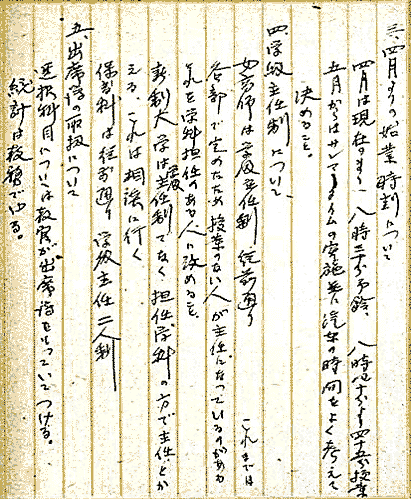 三、四月よりの始業時刻について
四月は現在のまゝ、八時三十分予鈴、八時四十分より四十五分授業
五月からはサンマータイムの実施並に汽車の時間をよく考えて
決めること。
四、学級主任制について、
女高師は学級主任制 従前通り
これまでは
各部で定めたため授業のない人が主任になっているのがある
それを学科担任のある人に改めること。
新制大学は学級主任制でなく、担任学科の方で主任とか
える、これは相談に行く
保育科は従前通り 学級主任二人制
五、出席簿の取扱について
選択科目については教官が出席簿をもっていてつける。
統計は教務でやる。